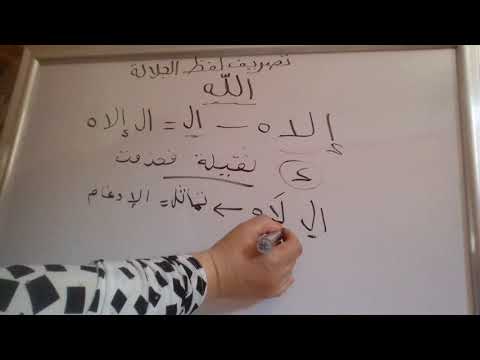 تصريف لفظ الجلالة
الله
إلاه – ال = ال إلاه
ء ثقيلة فحذفت
ال لَاه ← تماثل = الإدغام